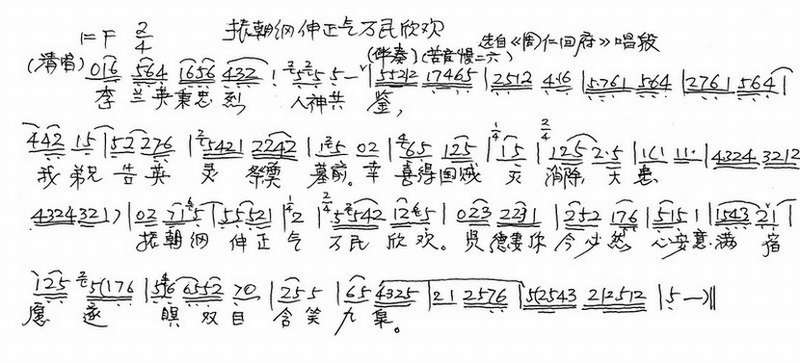 1=F 2/4 振朝纲伸正气万民欣欢
选自《周仁回府》唱段
(清唱) (伴奏)(苦音慢二六)
016 564 1656 432 | 2525 5 — | 55212 17465 | 2512 416 | 5761 564 | 2761 564 |
李兰英秉忠烈 人神共鉴，
442 15 | 52 276 | 25421 2242 | 125 02 | 465 125 | 1/4 15 | 2/4 125 2·5 | 161 11· | 4324 3212 |
我弟兄告英灵祭奠墓前。幸喜得国贼灭消除大患
4324321) | 02 715 | 55521 | 1/4 2 | 2/4 52542 1265 | 023 2231 | 252 176 | 5151 | 1543 21 |
振朝纲伸正气万民欣欢。贤德妻你今必然心安意满宿
125 25(176 | 546 6552 70 | 255 | 65 4325 | 21 2576 | 52543 212512 | 5 —) ||
愿遂瞑双目含笑九泉。